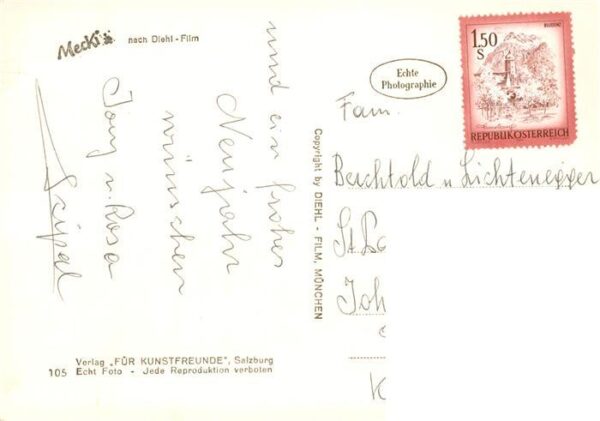 Mecki
nach Diehl - Film
und ein frohes
Neujahr
wünschen
Copyright by DIEHL - FILM, MÜNCHEN
Echte
Photographie
BLUDENZ
1.50
S
REPUBLIK ÖSTERREICH
Fam.
Berchtold u Lichtenegger
St
Joh
K
Verlag „FÜR KUNSTFREUNDE", Salzburg
105 Echt Foto - Jede Reproduktion verboten